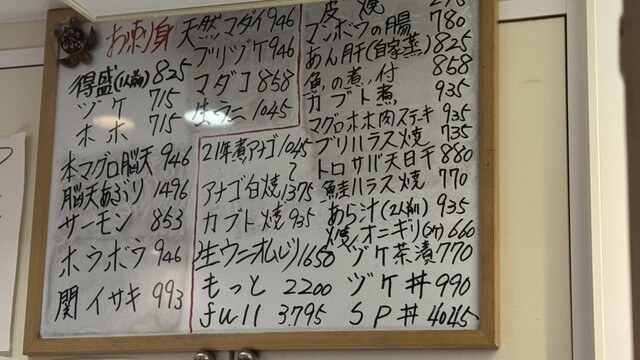 お刺身
得盛(1人前) 825
ヅケ 715
ホホ 715
本マグロ脳天 946
脳天あぶり 1496
サーモン 853
ホウボウ 946
関イサキ 993
天然マダイ 946
ブリヅケ 946
マダコ 858
生ウニ 1045
21年煮アナゴ 1045
〜
アナゴ白焼 1,375
カブト焼 935
生ウニオムレツ 1650
もっと 2200
full 3,795
皮焼
マンボウの腸 780
あん肝(自家蒸) 825
魚の煮付 858
カブト煮 935
マグロホホ肉ステーキ 935
ブリハラス焼 735
トロサバ天日干 880
鮭ハラス焼 770
あら汁(2人前) 935
焼オニギリ 660
ヅケ茶漬 770
ヅケ丼 990
SP丼 4045